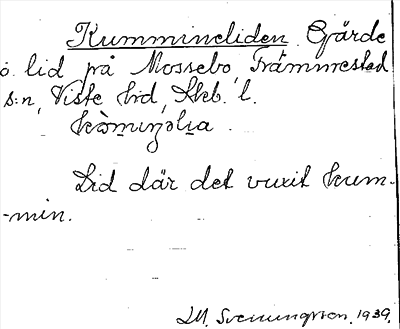 Kummineliden Gärde
o. lid på Mossebo, Främmestad
s:n, Viste hd, Skb. l.
Lid där det vuxit kum-
-min.
M. Svenungsson. 1939.